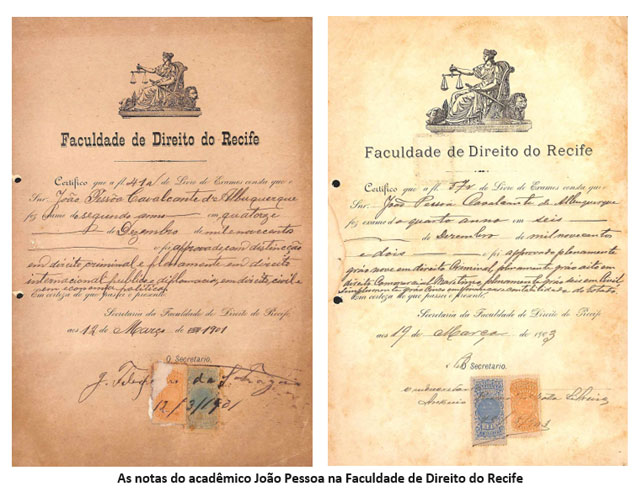 Faculdade de Direito do Recife
Certifico que a fl. 41a do Livro de Exames consta que o
Snr. João Pessôa Cavalcante de Albuquerque
fez exame do segundo anno em quatorze
de Dezembro de mil novecentos
e foi approvado com distincção
em direito criminal e plenamente em direito
internacional publico, diplomacia, em direito civil e
em economia politica
Em certeza do que passei o presente.
Secretaria da Faculdade de Direito do Recife
aos 12 de Março de 1901
O Secretario.
12/3/1901
Faculdade de Direito do Recife
Certifico que a fl. do Livro de Exames consta que o
Snr. João Pessoa Cavalcante de Albuquerque
fez exame do quarto anno em seis
de Dezembro de mil novecentos
e dois e foi approvado plenamente
gráo nove em direito Criminal, plenamente gráo oito em
direito Comercial Maritimo, plenamente gráo seis em Civil,
simplesmente gráo
Em certeza do que passei o presente.
Secretaria da Faculdade de Direito do Recife
aos 19 de Março de 1903
O Secretario.
As notas do acadêmico João Pessoa na Faculdade de Direito do Recife